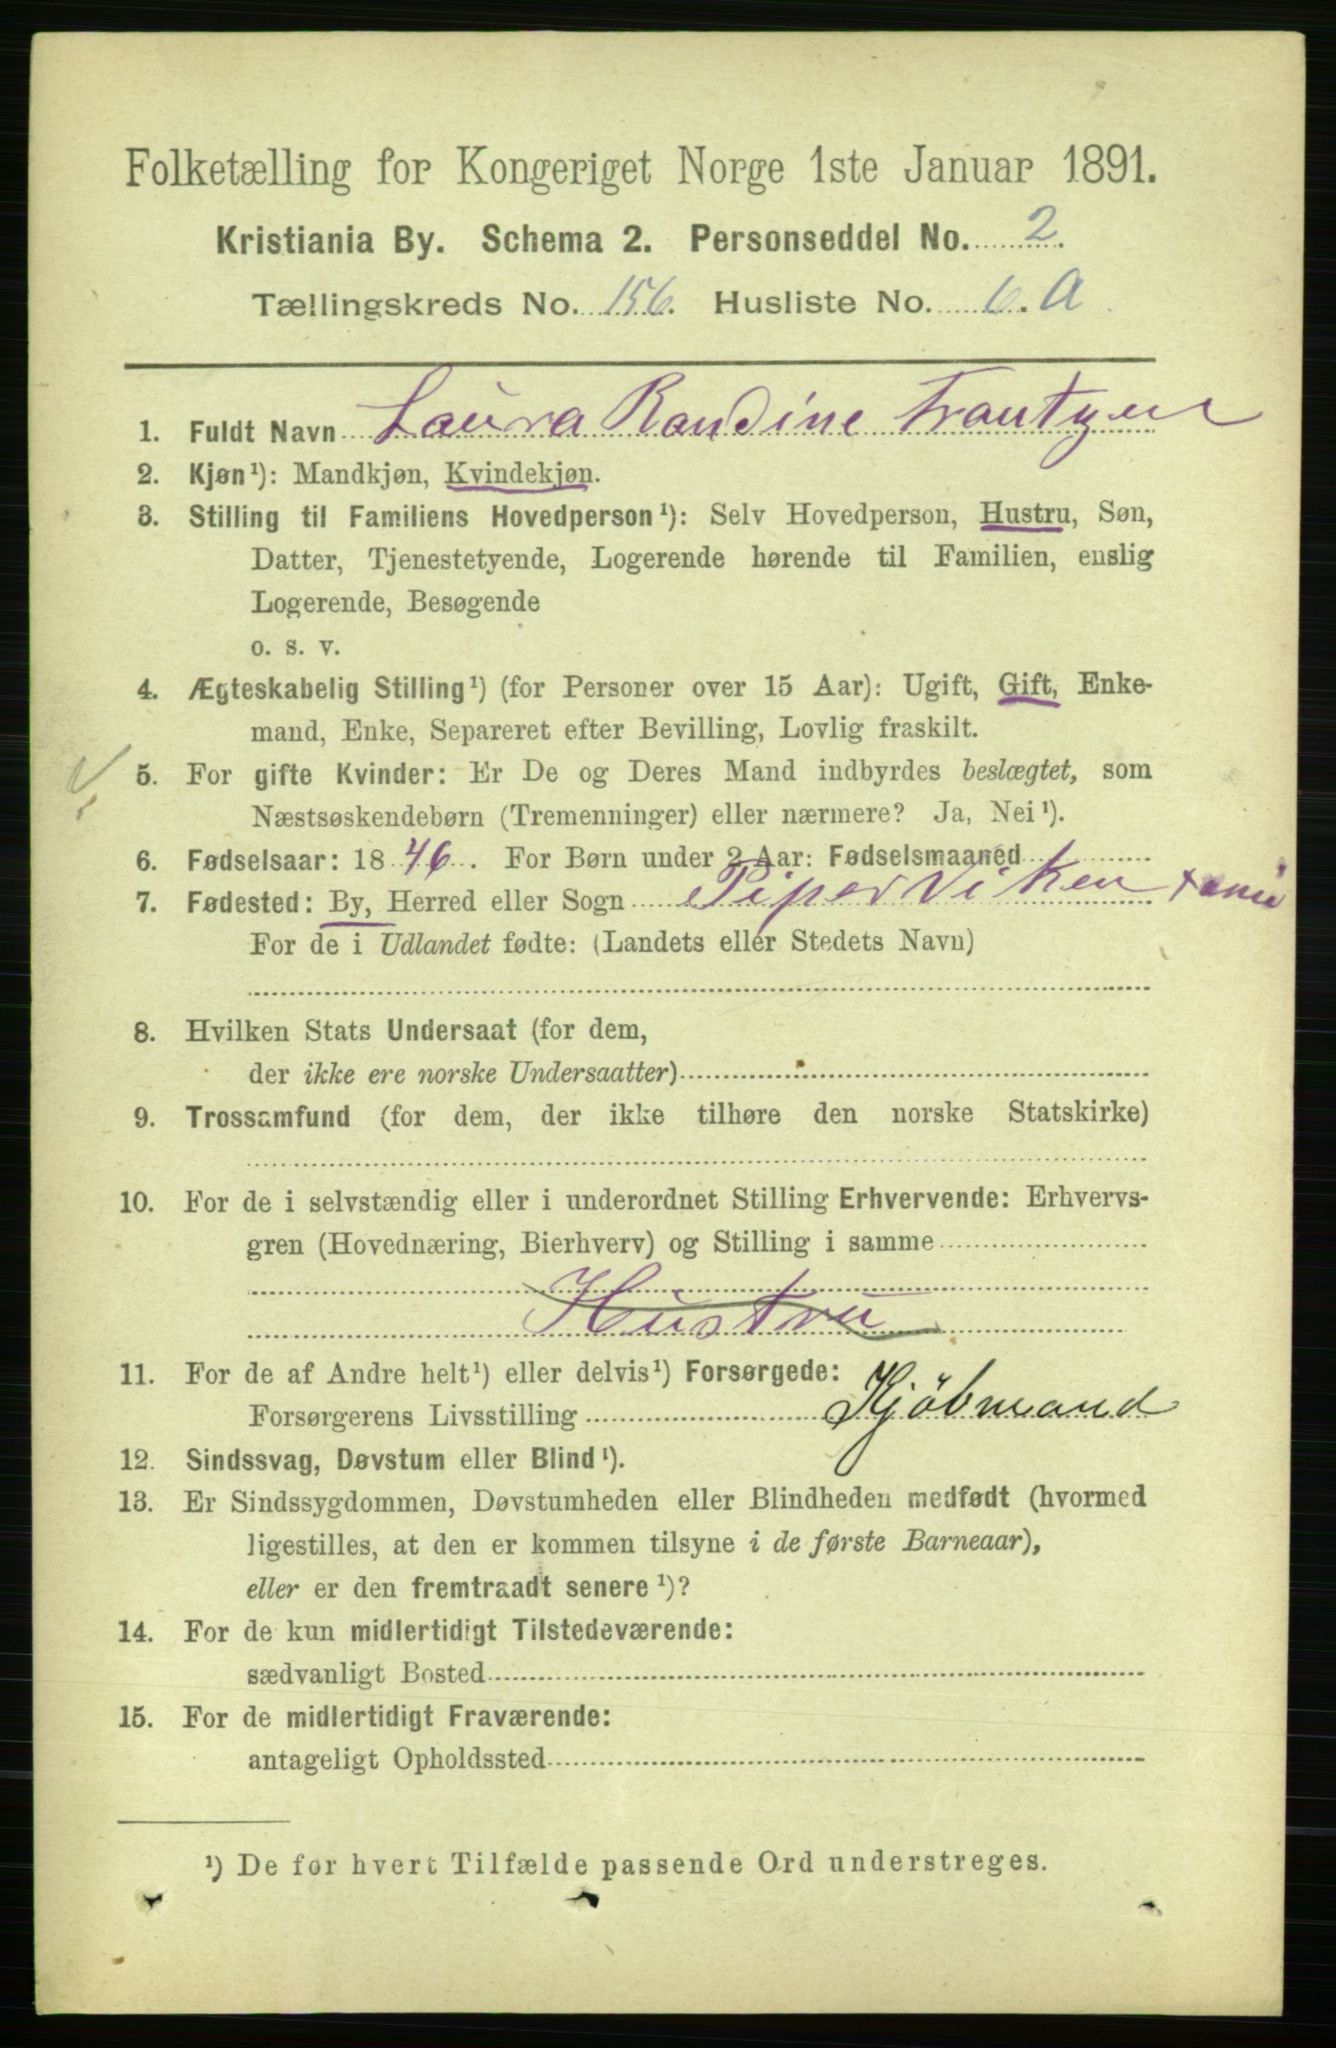 Folketælling for Kongeriget Norge 1ste Januar 1891.
Kristiania By. Schema 2. Personseddel No. 2.
Tællingskreds No. 156. Husliste No. 6. A
1. Fuldt Navn Laura Randine Trantzen
2. Kjøn¹): Mandkjøn, Kvindekjøn.
3. Stilling til Familiens Hovedperson¹): Selv Hovedperson, Hustru, Søn,
Datter, Tjenestetyende, Logerende hørende til Familien, enslig
Logerende, Besøgende
o. s. v.
4. Ægteskabelig Stilling¹) (for Personer over 15 Aar): Ugift, Gift, Enke-
mand, Enke, Separeret efter Bevilling, Lovlig fraskilt.
5. For gifte Kvinder: Er De og Deres Mand indbyrdes beslægtet, som
Næstsøskendebørn (Tremenninger) eller nærmere? Ja, Nei¹).
6. Fødselsaar: 1846. For Børn under 2 Aar: Fødselsmaaned
7. Fødested: By, Herred eller Sogn Piperviken Xania
For de i Udlandet fødte: (Landets eller Stedets Navn)
8. Hvilken Stats Undersaat (for dem,
der ikke ere norske Undersaatter)
9. Trossamfund (for dem, der ikke tilhøre den norske Statskirke)
10. For de i selvstændig eller i underordnet Stilling Erhvervende: Erhvervs-
gren (Hovednæring, Bierhverv) og Stilling i samme
Hustru
11. For de af Andre helt¹) eller delvis¹) Forsørgede:
Forsørgerens Livsstilling Kjöbmand
12. Sindssvag, Døvstum eller Blind¹).
13. Er Sindssygdommen, Døvstumheden eller Blindheden medfødt (hvormed
ligestilles, at den er kommen tilsyne i de første Barneaar),
eller er den fremtraadt senere¹)?
14. For de kun midlertidigt Tilstedeværende:
sædvanligt Bosted
15. For de midlertidigt Fraværende:
antageligt Opholdssted
¹) De for hvert Tilfælde passende Ord understreges.